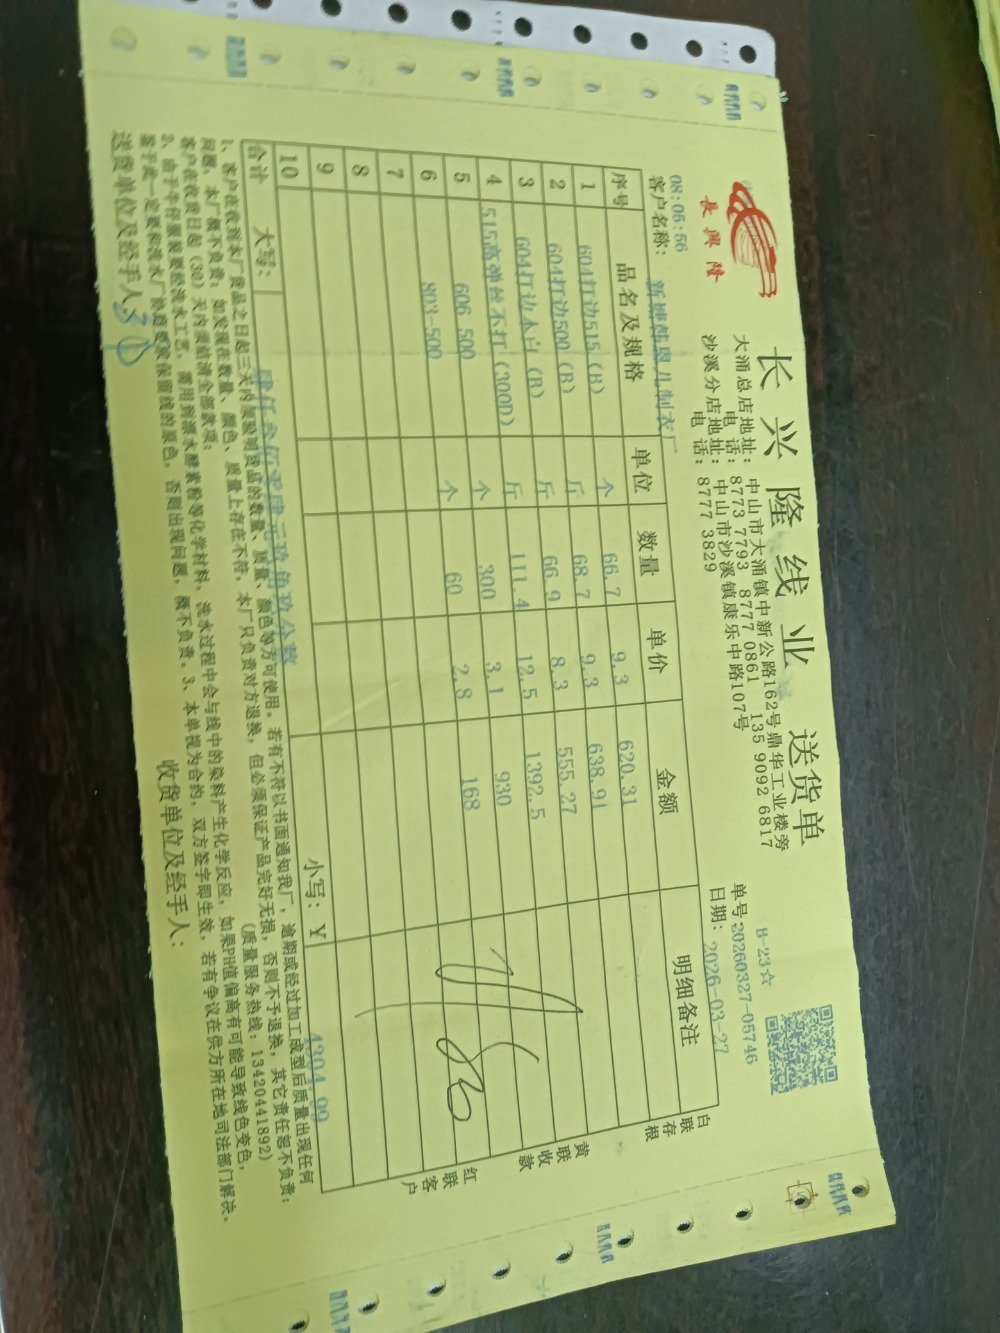 長興隆
长兴隆线业 送货单
B-23☆
大涌总店地址：中山市大涌镇中新公路162号鼎华工业楼旁
电 话：8773 7793 8777 0861 135 9092 6817
沙溪分店地址：中山市沙溪镇康乐中路107号
电 话：8777 3829
单号:20260327-05746
日期：2026-03-27
08:05:56
客户名称：新塘韩恩儿制衣厂
序号 品名及规格 单位 数量 单价 金额 明细备注
1 604打边515 (B) 个 66.7 9.3 620.31
2 604打边500 (B) 斤 68.7 9.3 638.91
3 604打边本白 (B) 斤 66.9 8.3 555.27
4 515高弹丝不打 (300D) 斤 111.4 12.5 1392.5
5 606 500 个 300 3.1 930
6 803-500 个 60 2.8 168
7
8
9
10
合计 大写：肆仟叁佰零肆元玖角玖分整 小写：¥ 4304.99
白联存根
黄联收款
红联客户
1、客户在收到本厂货品之日起三天内须验明货品的数量、质量、颜色等方可使用。若有不符以书面通知我厂，逾期或经过加工成型后质量出现任何
问题，本厂概不负责；如发现在数量、颜色、质量上存在不符，本厂只负责对方退换，但必须保证产品完好无损，否则不予退换，其它责任恕不负责；
客户在收货日起（30）天内须结清全部款项； （质量服务热线：13420441892）
2、由于牛仔服装要经洗水工艺，需用到漂水酵素粉等化学材料，洗水过程中会与线中的染料产生化学反应，如果PH值偏高有可能导致线色变色，
鉴于此一定要和洗水厂协商要求保留线的原色，否则出现问题，概不负责。3、本单视为合约，双方签字即生效，若有争议在供方所在地司法部门解决。
送货单位及经手人： 收货单位及经手人：